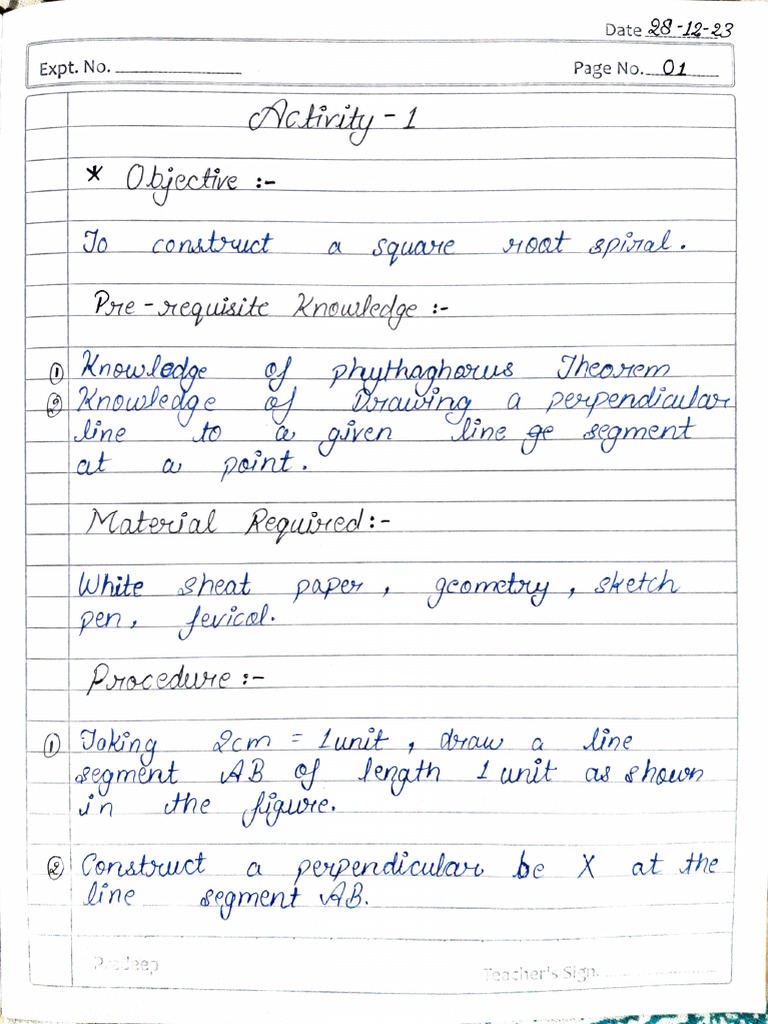 Date 28-12-23
Expt. No.
Page No. 01
Activity - 1
* Objective :-
To construct a square root spiral.
Pre-requisite Knowledge :-
① Knowledge of phythaghorus Theorem
② Knowledge of Drawing a perpendicular
line to a given line ge segment
at a point.
Material Required:-
White sheat paper, geometry, sketch
pen, fevicol.
Procedure :-
① Taking 2cm = 1unit, draw a line
segment AB of length 1 unit as shown
in the figure.
② Construct a perpendicular be X at the
line segment AB.
Pradeep
Teacher's Sign.